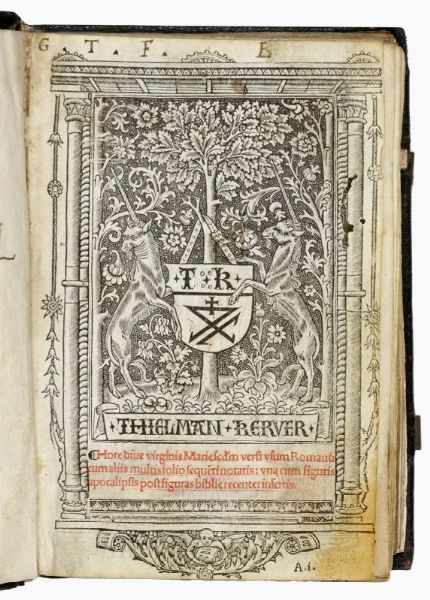 G. T. F. E
T K
THIELMAN KERVER
Hore diue virginis Marie scd'm verū vsum Romanū
cum aliis multis folio sequēti notatis: vna cum figuris
apocalipsis post figuras biblie recenter insertis.
A.i.